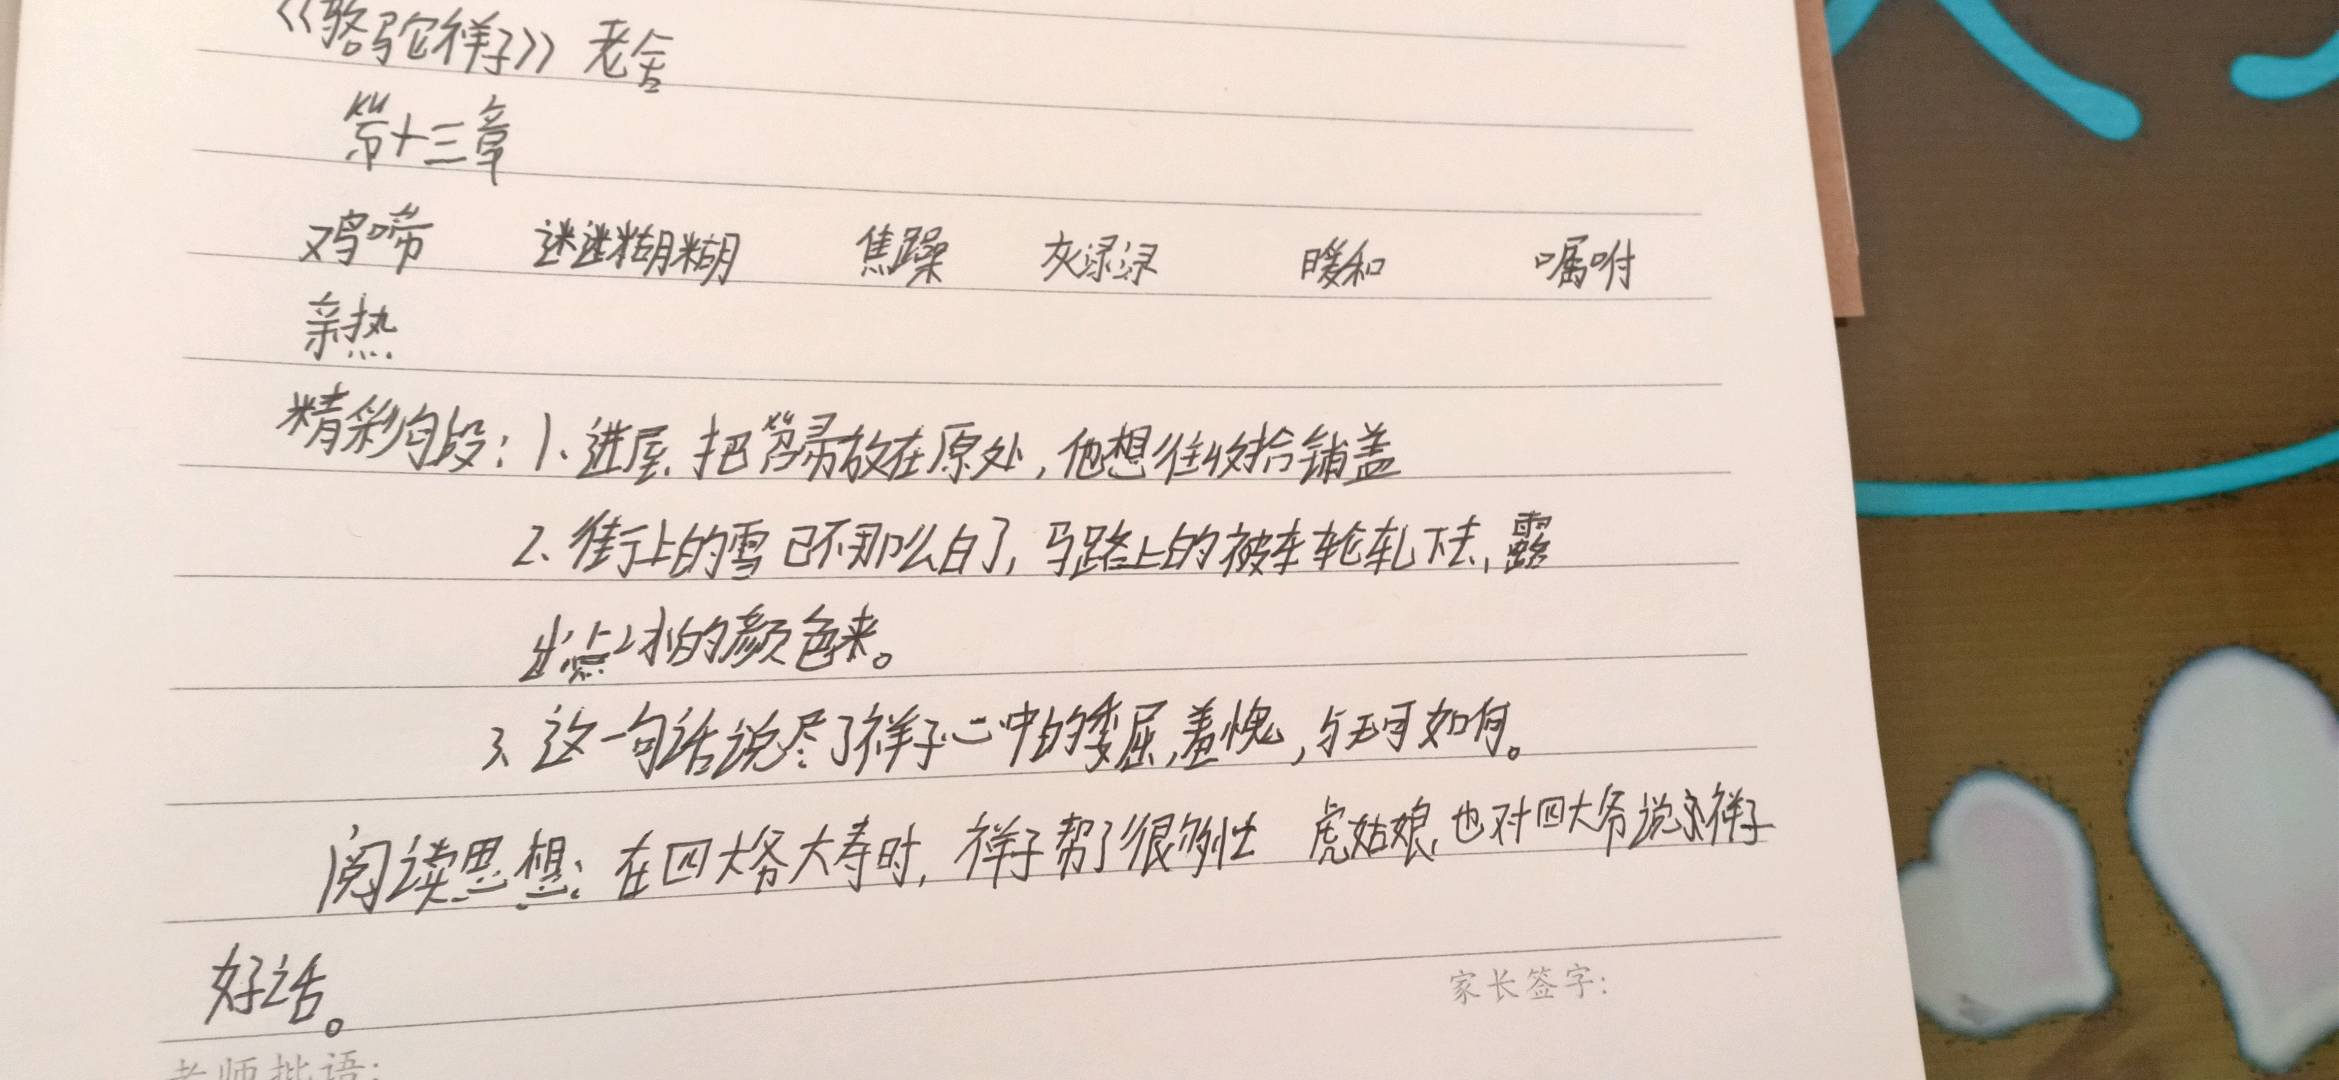 《骆驼祥子》 老舍
第十三章
鸡啼 迷迷糊糊 焦躁 灰渌渌 暖和 嘱咐
亲热
精彩句段：1、进屋，把笤帚放在原处，他想往收拾铺盖
2、街上的雪已不那么白了，马路上的被车轮轧下去，露
出点冰的颜色来。
3、这一句话说尽了祥子心中的委屈，羞愧，与无可如何。
阅读思想：在四大爷大寿时，祥子帮了很多忙 虎姑娘，也对四大爷说祥子
好话。
家长签字：
老师批语：